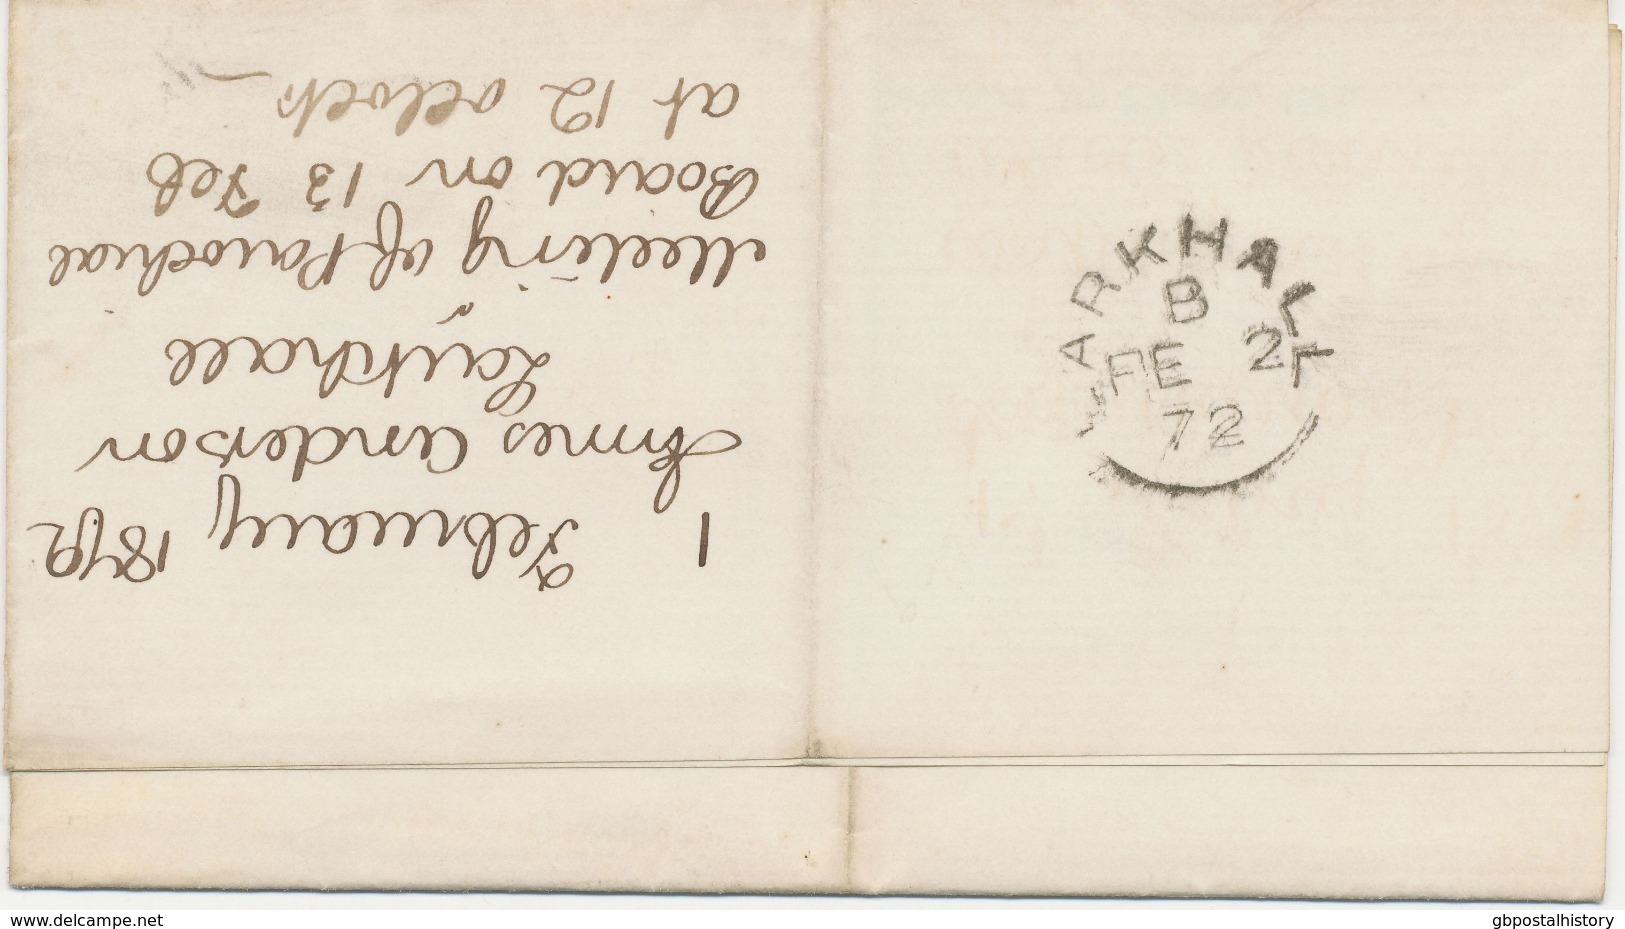 1 February 1872
James Anderson
Larkhall
Meeting of Parochial
Board on 13 Feb
at 12 oclock
ARKHALL
B
FE 2
72
www.delcampe.net
gbpostalhistory